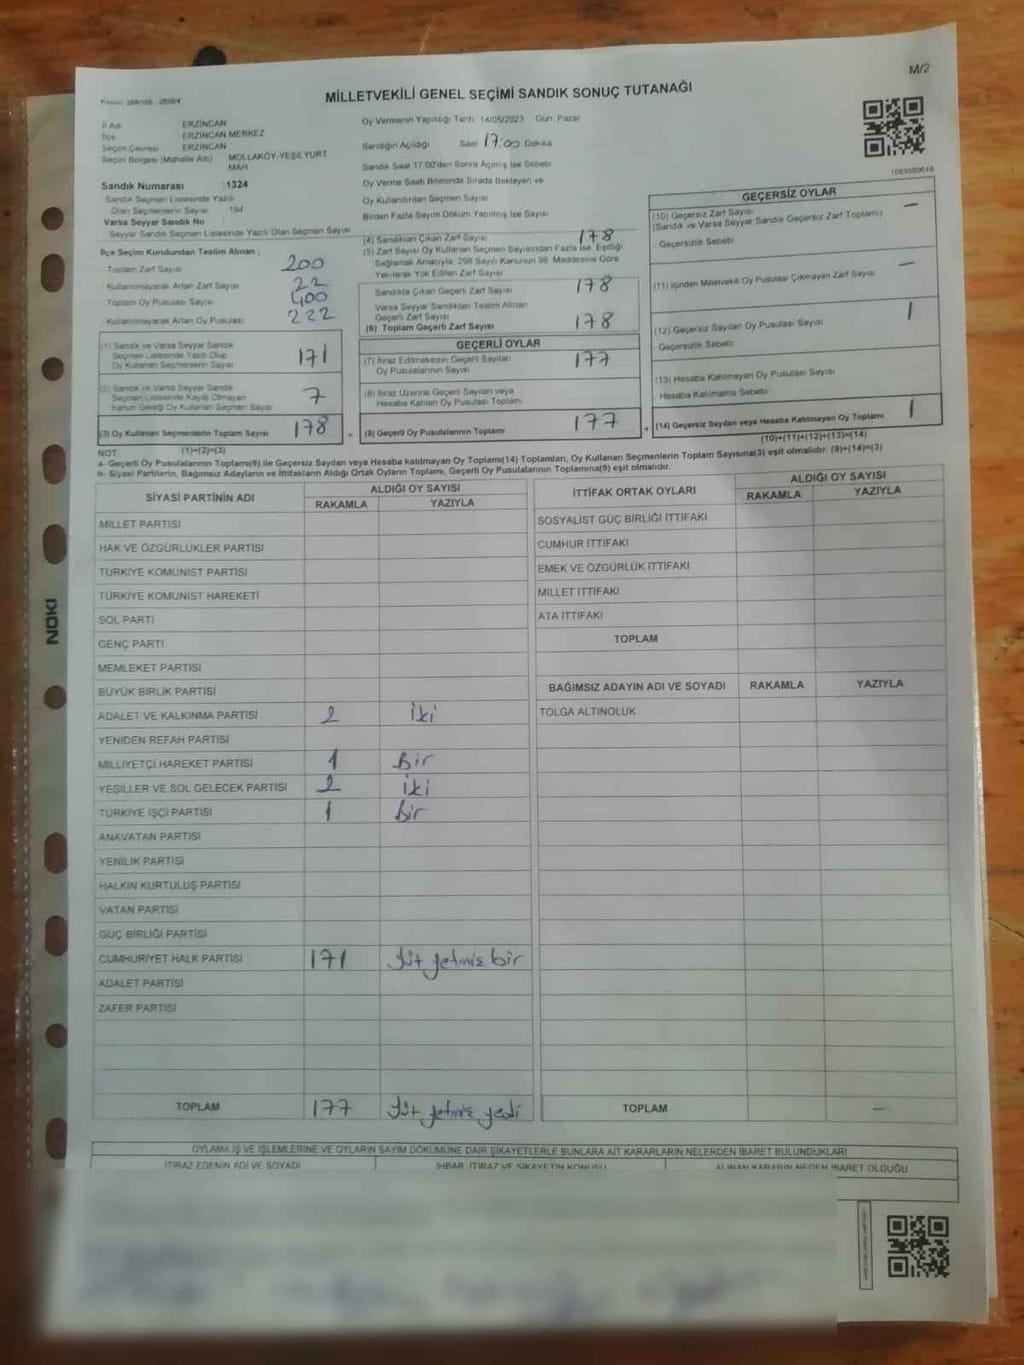 M/2
MİLLETVEKİLİ GENEL SEÇİMİ SANDIK SONUÇ TUTANAĞI
İl Adı ERZİNCAN
İlçe ERZİNCAN MERKEZ
Seçim Çevresi ERZİNCAN
Seçim Bölgesi (Mahalle Adı) MOLLAKÖY-YEŞİLYURT MAH
Sandık Numarası :1324
Sandık Seçmen Listesinde Yazılı
Olan Seçmenlerin Sayısı 194
Varsa Seyyar Sandık No
Seyyar Sandık Seçmen Listesinde Yazılı Olan Seçmen Sayısı
Oy Vermenin Yapıldığı Tarih 14/05/2023 Gün: Pazar
Sandığın Açıldığı Saat 17:00 Dakika
Sandık Saat 17:00'den Sonra Açılmış İse Sebebi
Oy Verme Saati Bitiminde Sırada Bekleyen ve
Oy Kullandırılan Seçmen Sayısı
Birden Fazla Sayım Döküm Yapılmış İse Sayısı
İlçe Seçim Kurulundan Teslim Alınan ;
- Toplam Zarf Sayısı 200
- Kullanılmayarak Artan Zarf Sayısı 22
Toplam Oy Pusulası Sayısı 400
- Kullanılmayarak Artan Oy Pusulası 222
(1) Sandık ve Varsa Seyyar Sandık
Seçmen Listesinde Yazılı Olup
Oy Kullanan Seçmenlerin Sayısı 171
(2) Sandık ve Varsa Seyyar Sandık
Seçmen Listesinde Kayıtlı Olmayan
Kanun Gereği Oy Kullanan Seçmen Sayısı 7
(3) Oy Kullanan Seçmenlerin Toplam Sayısı 178
(4) Sandıktan Çıkan Zarf Sayısı 178
(5) Zarf Sayısı Oy Kullanan Seçmen Sayısından Fazla İse, Eşitliği
Sağlamak Amacıyla, 298 Sayılı Kanunun 98. Maddesine Göre
Yakılarak Yok Edilen Zarf Sayısı
Sandıkta Çıkan Geçerli Zarf Sayısı 178
Varsa Seyyar Sandıktan Teslim Alınan
Geçerli Zarf Sayısı
(6) Toplam Geçerli Zarf Sayısı 178
GEÇERLİ OYLAR
(7) İtiraz Edilmeksizin Geçerli Sayılan
Oy Pusulalarının Sayısı 177
(8) İtiraz Üzerine Geçerli Sayılan veya
Hesaba Katılan Oy Pusulası Toplamı
(9) Geçerli Oy Pusulalarının Toplamı 177
1083580618
GEÇERSİZ OYLAR
(10) Geçersiz Zarf Sayısı
(Sandık ve Varsa Seyyar Sandık Geçersiz Zarf Toplamı) —
Geçersizlik Sebebi
(11) İçinden Milletvekili Oy Pusulası Çıkmayan Zarf Sayısı —
(12) Geçersiz Sayılan Oy Pusulası Sayısı 1
Geçersizlik Sebebi
(13) Hesaba Katılmayan Oy Pusulası Sayısı
Hesaba Katılmama Sebebi
(14) Geçersiz Sayılan veya Hesaba Katılmayan Oy Toplamı 1
NOT (1)+(2)=(3) (10)+(11)+(12)+(13)=(14)
a- Geçerli Oy Pusulalarının Toplamı(9) ile Geçersiz Sayılan veya Hesaba katılmayan Oy Toplamı(14) Toplamları, Oy Kullanan Seçmenlerin Toplam Sayısına(3) eşit olmalıdır. (9)+(14)=(3)
b- Siyasi Partilerin, Bağımsız Adayların ve İttifakların Aldığı Ortak Oyların Toplamı, Geçerli Oy Pusulalarının Toplamına(9) eşit olmalıdır.
SİYASİ PARTİNİN ADI ALDIĞI OY SAYISI
RAKAMLA YAZIYLA
MİLLET PARTİSİ
HAK VE ÖZGÜRLÜKLER PARTİSİ
TÜRKİYE KOMÜNİST PARTİSİ
TÜRKİYE KOMÜNİST HAREKETİ
SOL PARTİ
GENÇ PARTİ
MEMLEKET PARTİSİ
BÜYÜK BİRLİK PARTİSİ
ADALET VE KALKINMA PARTİSİ 2 iki
YENİDEN REFAH PARTİSİ
MİLLİYETÇİ HAREKET PARTİSİ 1 Bir
YEŞİLLER VE SOL GELECEK PARTİSİ 2 iki
TÜRKİYE İŞÇİ PARTİSİ 1 bir
ANAVATAN PARTİSİ
YENİLİK PARTİSİ
HALKIN KURTULUŞ PARTİSİ
VATAN PARTİSİ
GÜÇ BİRLİĞİ PARTİSİ
CUMHURİYET HALK PARTİSİ 171 Yüz yetmiş bir
ADALET PARTİSİ
ZAFER PARTİSİ
TOPLAM 177 Yüz yetmiş yedi
İTTİFAK ORTAK OYLARI ALDIĞI OY SAYISI
RAKAMLA YAZIYLA
SOSYALİST GÜÇ BİRLİĞİ İTTİFAKI
CUMHUR İTTİFAKI
EMEK VE ÖZGÜRLÜK İTTİFAKI
MİLLET İTTİFAKI
ATA İTTİFAKI
TOPLAM
BAĞIMSIZ ADAYIN ADI VE SOYADI RAKAMLA YAZIYLA
TOLGA ALTINOLUK
TOPLAM —
OYLAMA İŞ VE İŞLEMLERİNE VE OYLARIN SAYIM DÖKÜMÜNE DAİR ŞİKAYETLERLE BUNLARA AİT KARARLARIN NELERDEN İBARET BULUNDUKLARI
İTİRAZ EDENİN ADI VE SOYADI İHBAR, İTİRAZ VE ŞİKAYETİN KONUSU ALINAN KARARIN NEDEN İBARET OLDUĞU
NOKI